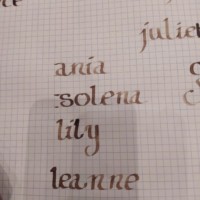 juliet
ania
solena
lily
leanne